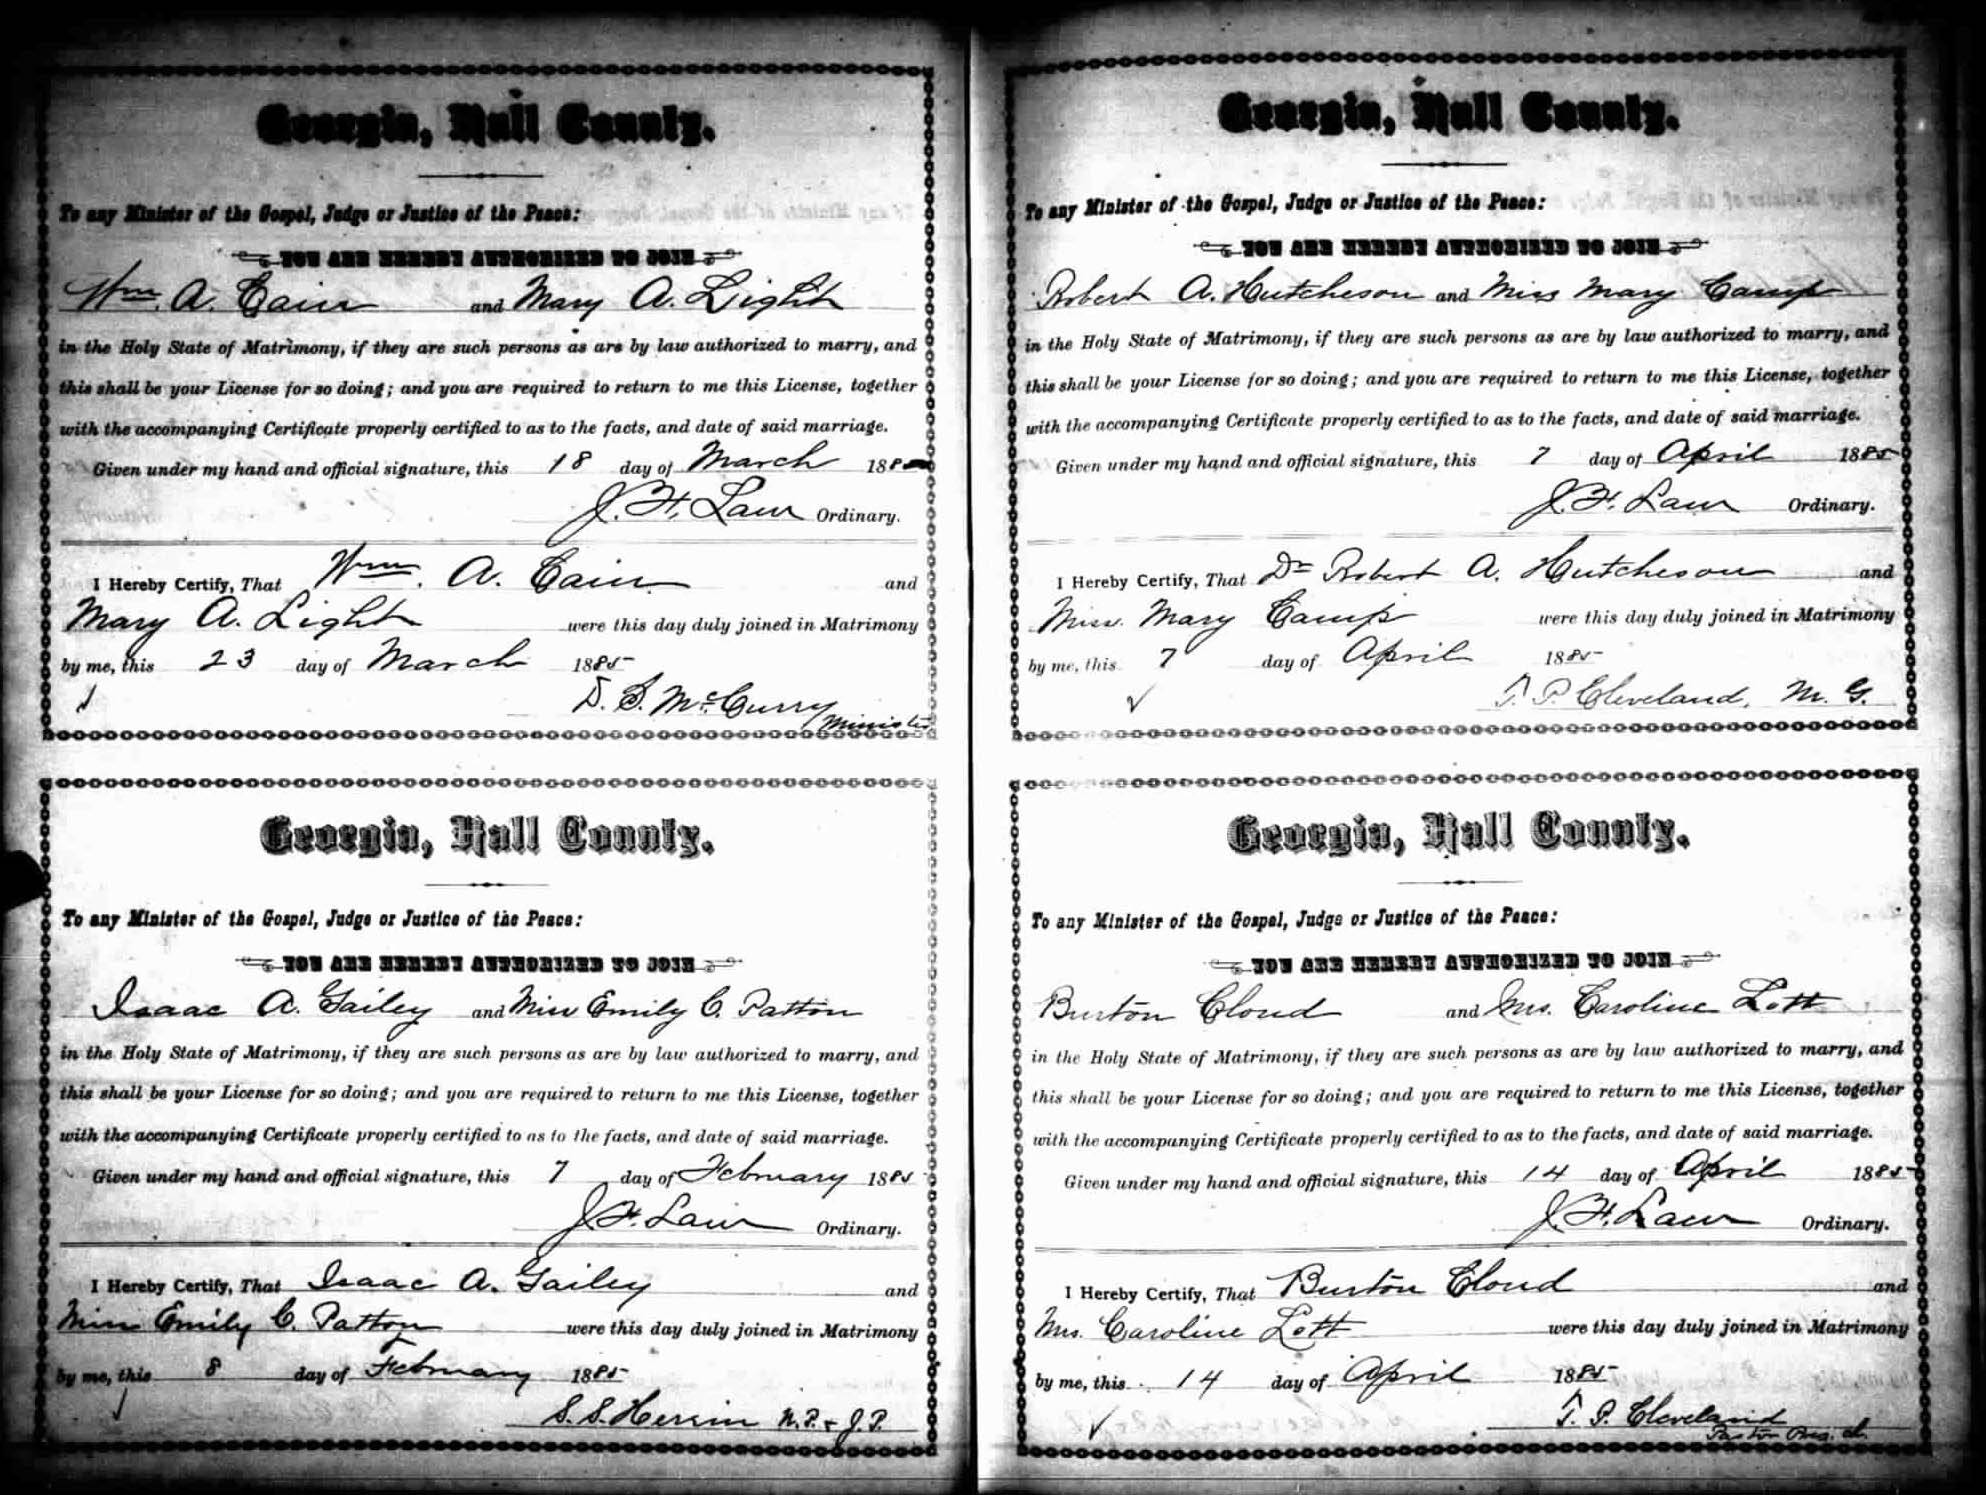 Georgia, Hall County.
To any Minister of the Gospel, Judge or Justice of the Peace:
YOU ARE HEREBY AUTHORIZED TO JOIN
Wm. A. Cain and Mary A. Light
in the Holy State of Matrimony, if they are such persons as are by law authorized to marry, and
this shall be your License for so doing; and you are required to return to me this License, together
with the accompanying Certificate properly certified to as to the facts, and date of said marriage.
Given under my hand and official signature, this 18 day of March 188
J. H. Law Ordinary.
I Hereby Certify, That Wm. A. Cain and
Mary A. Light were this day duly joined in Matrimony
by me, this 23 day of March 1885
D. S. McCurry
Minister
Georgia, Hall County.
To any Minister of the Gospel, Judge or Justice of the Peace:
YOU ARE HEREBY AUTHORIZED TO JOIN
Isaac A. Gailey and Miss Emily C. Patton
in the Holy State of Matrimony, if they are such persons as are by law authorized to marry, and
this shall be your License for so doing; and you are required to return to me this License, together
with the accompanying Certificate properly certified to as to the facts, and date of said marriage.
Given under my hand and official signature, this 7 day of February 1885
J. H. Law Ordinary.
I Hereby Certify, That Isaac A. Gailey and
Miss Emily C. Patton were this day duly joined in Matrimony
by me, this 8 day of February 1885
S. S. Herrin N.P. & J.P.
Georgia, Hall County.
To any Minister of the Gospel, Judge or Justice of the Peace:
YOU ARE HEREBY AUTHORIZED TO JOIN
Robert A. Hutcheson and Miss Mary Camp
in the Holy State of Matrimony, if they are such persons as are by law authorized to marry, and
this shall be your License for so doing; and you are required to return to me this License, together
with the accompanying Certificate properly certified to as to the facts, and date of said marriage.
Given under my hand and official signature, this 7 day of April 1885
J. H. Law Ordinary.
I Hereby Certify, That Dr Robert A. Hutcheson and
Miss. Mary Camp were this day duly joined in Matrimony
by me, this 7 day of April 1885
T. P. Cleveland, M. G.
Georgia, Hall County.
To any Minister of the Gospel, Judge or Justice of the Peace:
YOU ARE HEREBY AUTHORIZED TO JOIN
Burton Cloud and Mrs. Caroline Lott
in the Holy State of Matrimony, if they are such persons as are by law authorized to marry, and
this shall be your License for so doing; and you are required to return to me this License, together
with the accompanying Certificate properly certified to as to the facts, and date of said marriage.
Given under my hand and official signature, this 14 day of April 1885
J. H. Law Ordinary.
I Hereby Certify, That Burton Cloud and
Mrs. Caroline Lott were this day duly joined in Matrimony
by me, this 14 day of April 1885
T. P. Cleveland
Pastor Pres. ch.